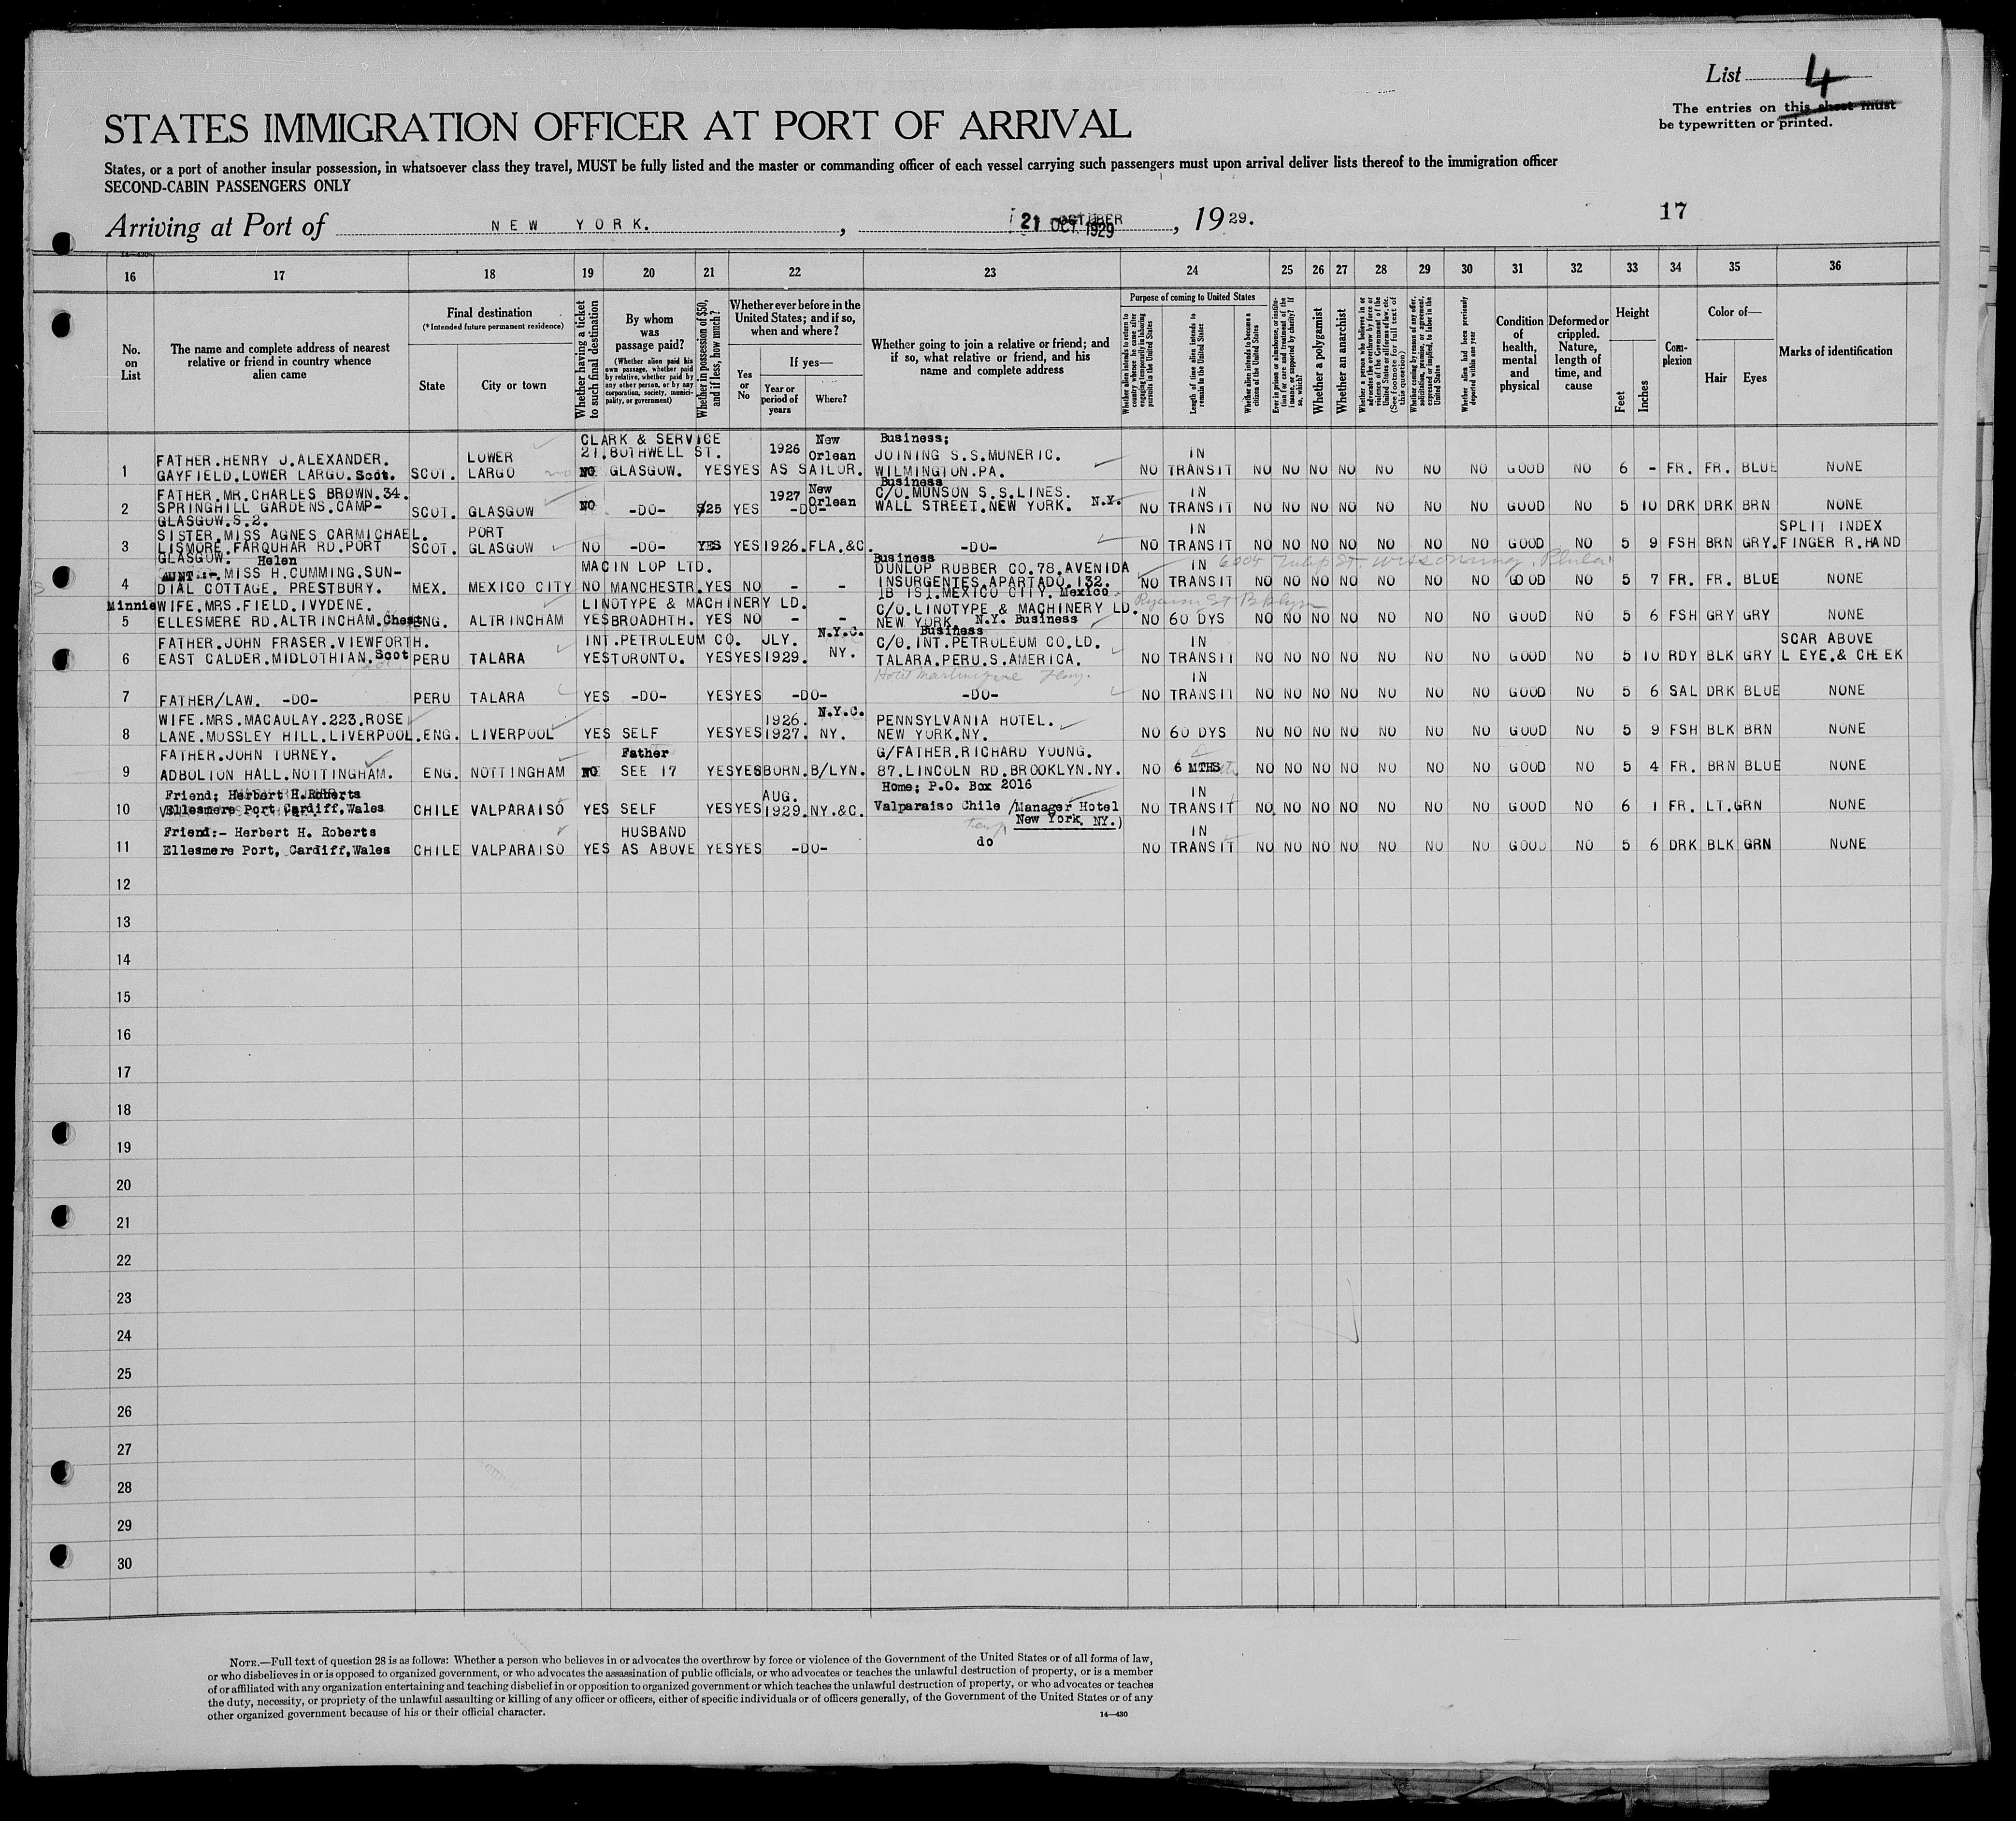 List 4
The entries on this sheet must
be typewritten or printed.
STATES IMMIGRATION OFFICER AT PORT OF ARRIVAL
States, or a port of another insular possession, in whatsoever class they travel, MUST be fully listed and the master or commanding officer of each vessel carrying such passengers must upon arrival deliver lists thereof to the immigration officer
SECOND-CABIN PASSENGERS ONLY
Arriving at Port of NEW YORK. , 21 OCT. 1929 , 1929.
17
16 17 18 19 20 21 22 23 24 25 26 27 28 29 30 31 32 33 34 35 36
No. on List
The name and complete address of nearest relative or friend in country whence alien came
Final destination
(*Intended future permanent residence)
State
City or town
Whether having a ticket to such final destination
By whom was passage paid?
(Whether alien paid his own passage, whether paid by relative, whether paid by any other person, or by any corporation, society, municipality, or government)
Whether in possession of $50, and if less, how much?
Whether ever before in the United States; and if so, when and where?
Yes or No
If yes—
Year or period of years
Where?
Whether going to join a relative or friend; and if so, what relative or friend, and his name and complete address
Purpose of coming to United States
Whether alien intends to return to country whence he came after engaging temporarily in laboring pursuits in the United States
Length of time alien intends to remain in the United States
Whether alien intends to become a citizen of the United States
Ever in prison or almshouse, or institution for care and treatment of the insane, or supported by charity? If so, which?
Whether a polygamist
Whether an anarchist
Whether a person who believes in or advocates the overthrow by force or violence of the Government of the United States or all forms of law, etc. (See footnote for full text of this question)
Whether coming by reason of any offer, solicitation, promise, or agreement, expressed or implied, to labor in the United States
Whether alien had been previously deported within one year
Condition of health, mental and physical
Deformed or crippled. Nature, length of time, and cause
Height
Feet
Inches
Complexion
Color of—
Hair
Eyes
Marks of identification
1 FATHER.HENRY J.ALEXANDER. GAYFIELD.LOWER LARGO.Scot. SCOT. LOWER LARGO NO CLARK & SERVICE 21.BOTHWELL ST. GLASGOW. YES YES 1926 New Orlean AS SAILOR. Business; JOINING S.S.MUNERIC. WILMINGTON.PA. NO IN TRANSIT NO NO NO NO NO NO NO GOOD NO 6 - FR. FR. BLUE NONE
2 FATHER.MR.CHARLES BROWN.34. SPRINGHILL GARDENS.CAMP- GLASGOW.S.2. SCOT. GLASGOW NO -DO- $25 YES 1927 New Orlean -DO- Business C/O.MUNSON S.S.LINES. WALL STREET.NEW YORK. N.Y. NO IN TRANSIT NO NO NO NO NO NO NO GOOD NO 5 10 DRK DRK BRN NONE
3 SISTER.MISS AGNES CARMICHAEL. LISMORE.FARQUHAR RD.PORT GLASGOW. SCOT. PORT GLASGOW NO -DO- YES YES 1926.FLA.&C. -DO- NO IN TRANSIT NO NO NO NO NO NO NO GOOD NO 5 9 FSH BRN GRY. SPLIT INDEX FINGER R.HAND
4 Helen AUNT:-.MISS H.CUMMING.SUN- DIAL COTTAGE. PRESTBURY. MEX. MEXICO CITY NO MACIN LOP LTD. MANCHESTR. YES NO - - Business DUNLOP RUBBER CO.78.AVENIDA INSURGENTES.APARTADO.132. 1B IS1.MEXICO CITY. Mexico NO IN TRANSIT NO NO NO NO NO NO NO GOOD NO 5 7 FR. FR. BLUE NONE
6004 Tulip St. Wissinoming, Phila.
5 Minnie WIFE.MRS.FIELD.IVYDENE. ELLESMERE RD.ALTRINCHAM.Chest ENG. ALTRINCHAM YES LINOTYPE & MACHINERY LD. BROADHTH. YES NO - - C/O.LINOTYPE & MACHINERY LD. NEW YORK. N.Y. Business NO 60 DYS NO NO NO NO NO NO NO GOOD NO 5 6 FSH GRY GRY NONE
Ryerson St Bklyn
6 FATHER.JOHN FRASER.VIEWFORTH. EAST CALDER.MIDLOTHIAN.Scot PERU TALARA YES INT.PETROLEUM CO. TORONTO. YES YES JLY. 1929. N.Y.C. NY. Business C/O.INT.PETROLEUM CO.LD. TALARA.PERU.S.AMERICA. NO IN TRANSIT NO NO NO NO NO NO NO GOOD NO 5 10 RDY BLK GRY SCAR ABOVE L EYE.& CHEEK
Hotel Martinique
7 FATHER/LAW. -DO- PERU TALARA YES -DO- YES YES -DO- -DO- NO IN TRANSIT NO NO NO NO NO NO NO GOOD NO 5 6 SAL DRK BLUE NONE
8 WIFE.MRS.MACAULAY.223.ROSE LANE.MOSSLEY HILL.LIVERPOOL. ENG. LIVERPOOL YES SELF YES YES 1926. 1927. N.Y.C. NY. PENNSYLVANIA HOTEL. NEW YORK.NY. NO 60 DYS NO NO NO NO NO NO NO GOOD NO 5 9 FSH BLK BRN NONE
9 FATHER.JOHN TURNEY. ADBOLTON HALL.NOTTINGHAM. ENG. NOTTINGHAM NO Father SEE 17 YES YES BORN.B/LYN. G/FATHER.RICHARD YOUNG. 87.LINCOLN RD.BROOKLYN.NY. NO 6 MTHS NO NO NO NO NO NO NO GOOD NO 5 4 FR. BRN BLUE NONE
10 Friend; Herbert H.Roberts Ellesmere Port Cardiff,Wales CHILE VALPARAISO YES SELF YES YES AUG. 1929. NY.&C. Home; P.O. Box 2016 Valparaiso Chile (Manager Hotel New York, NY.) NO IN TRANSIT NO NO NO NO NO NO NO GOOD NO 6 1 FR. LT. GRN NONE
11 Friend:- Herbert H. Roberts Ellesmere Port, Cardiff,Wales CHILE VALPARAISO YES HUSBAND AS ABOVE YES YES -DO- do NO IN TRANSIT NO NO NO NO NO NO NO GOOD NO 5 6 DRK BLK GRN NONE
12
13
14
15
16
17
18
19
20
21
22
23
24
25
26
27
28
29
30
NOTE.—Full text of question 28 is as follows: Whether a person who believes in or advocates the overthrow by force or violence of the Government of the United States or of all forms of law,
or who disbelieves in or is opposed to organized government, or who advocates the assassination of public officials, or who advocates or teaches the unlawful destruction of property, or is a member
of or affiliated with any organization entertaining and teaching disbelief in or opposition to organized government or which teaches the unlawful destruction of property, or who advocates or teaches
the duty, necessity, or propriety of the unlawful assaulting or killing of any officer or officers, either of specific individuals or of officers generally, of the Government of the United States or of any
other organized government because of his or their official character.
14—430